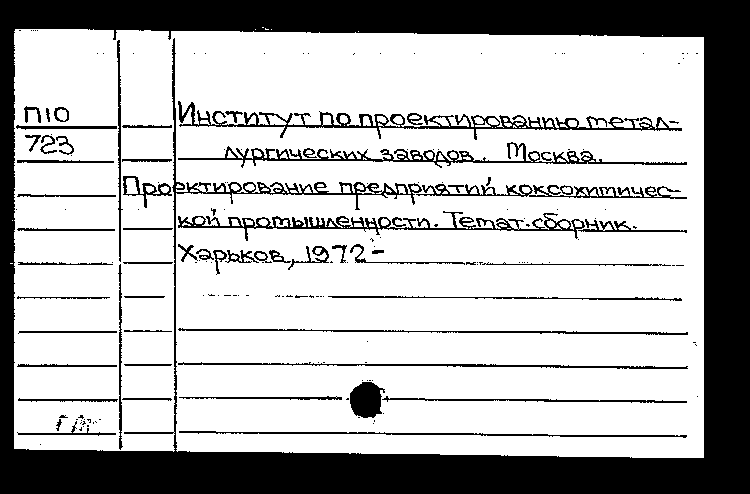 П10 Институт по проектированию метал-
723 лургических заводов. Москва.
Проектирование предприятий коксохимичес-
кой промышленности. Темат. сборник.
Харьков, 1972-